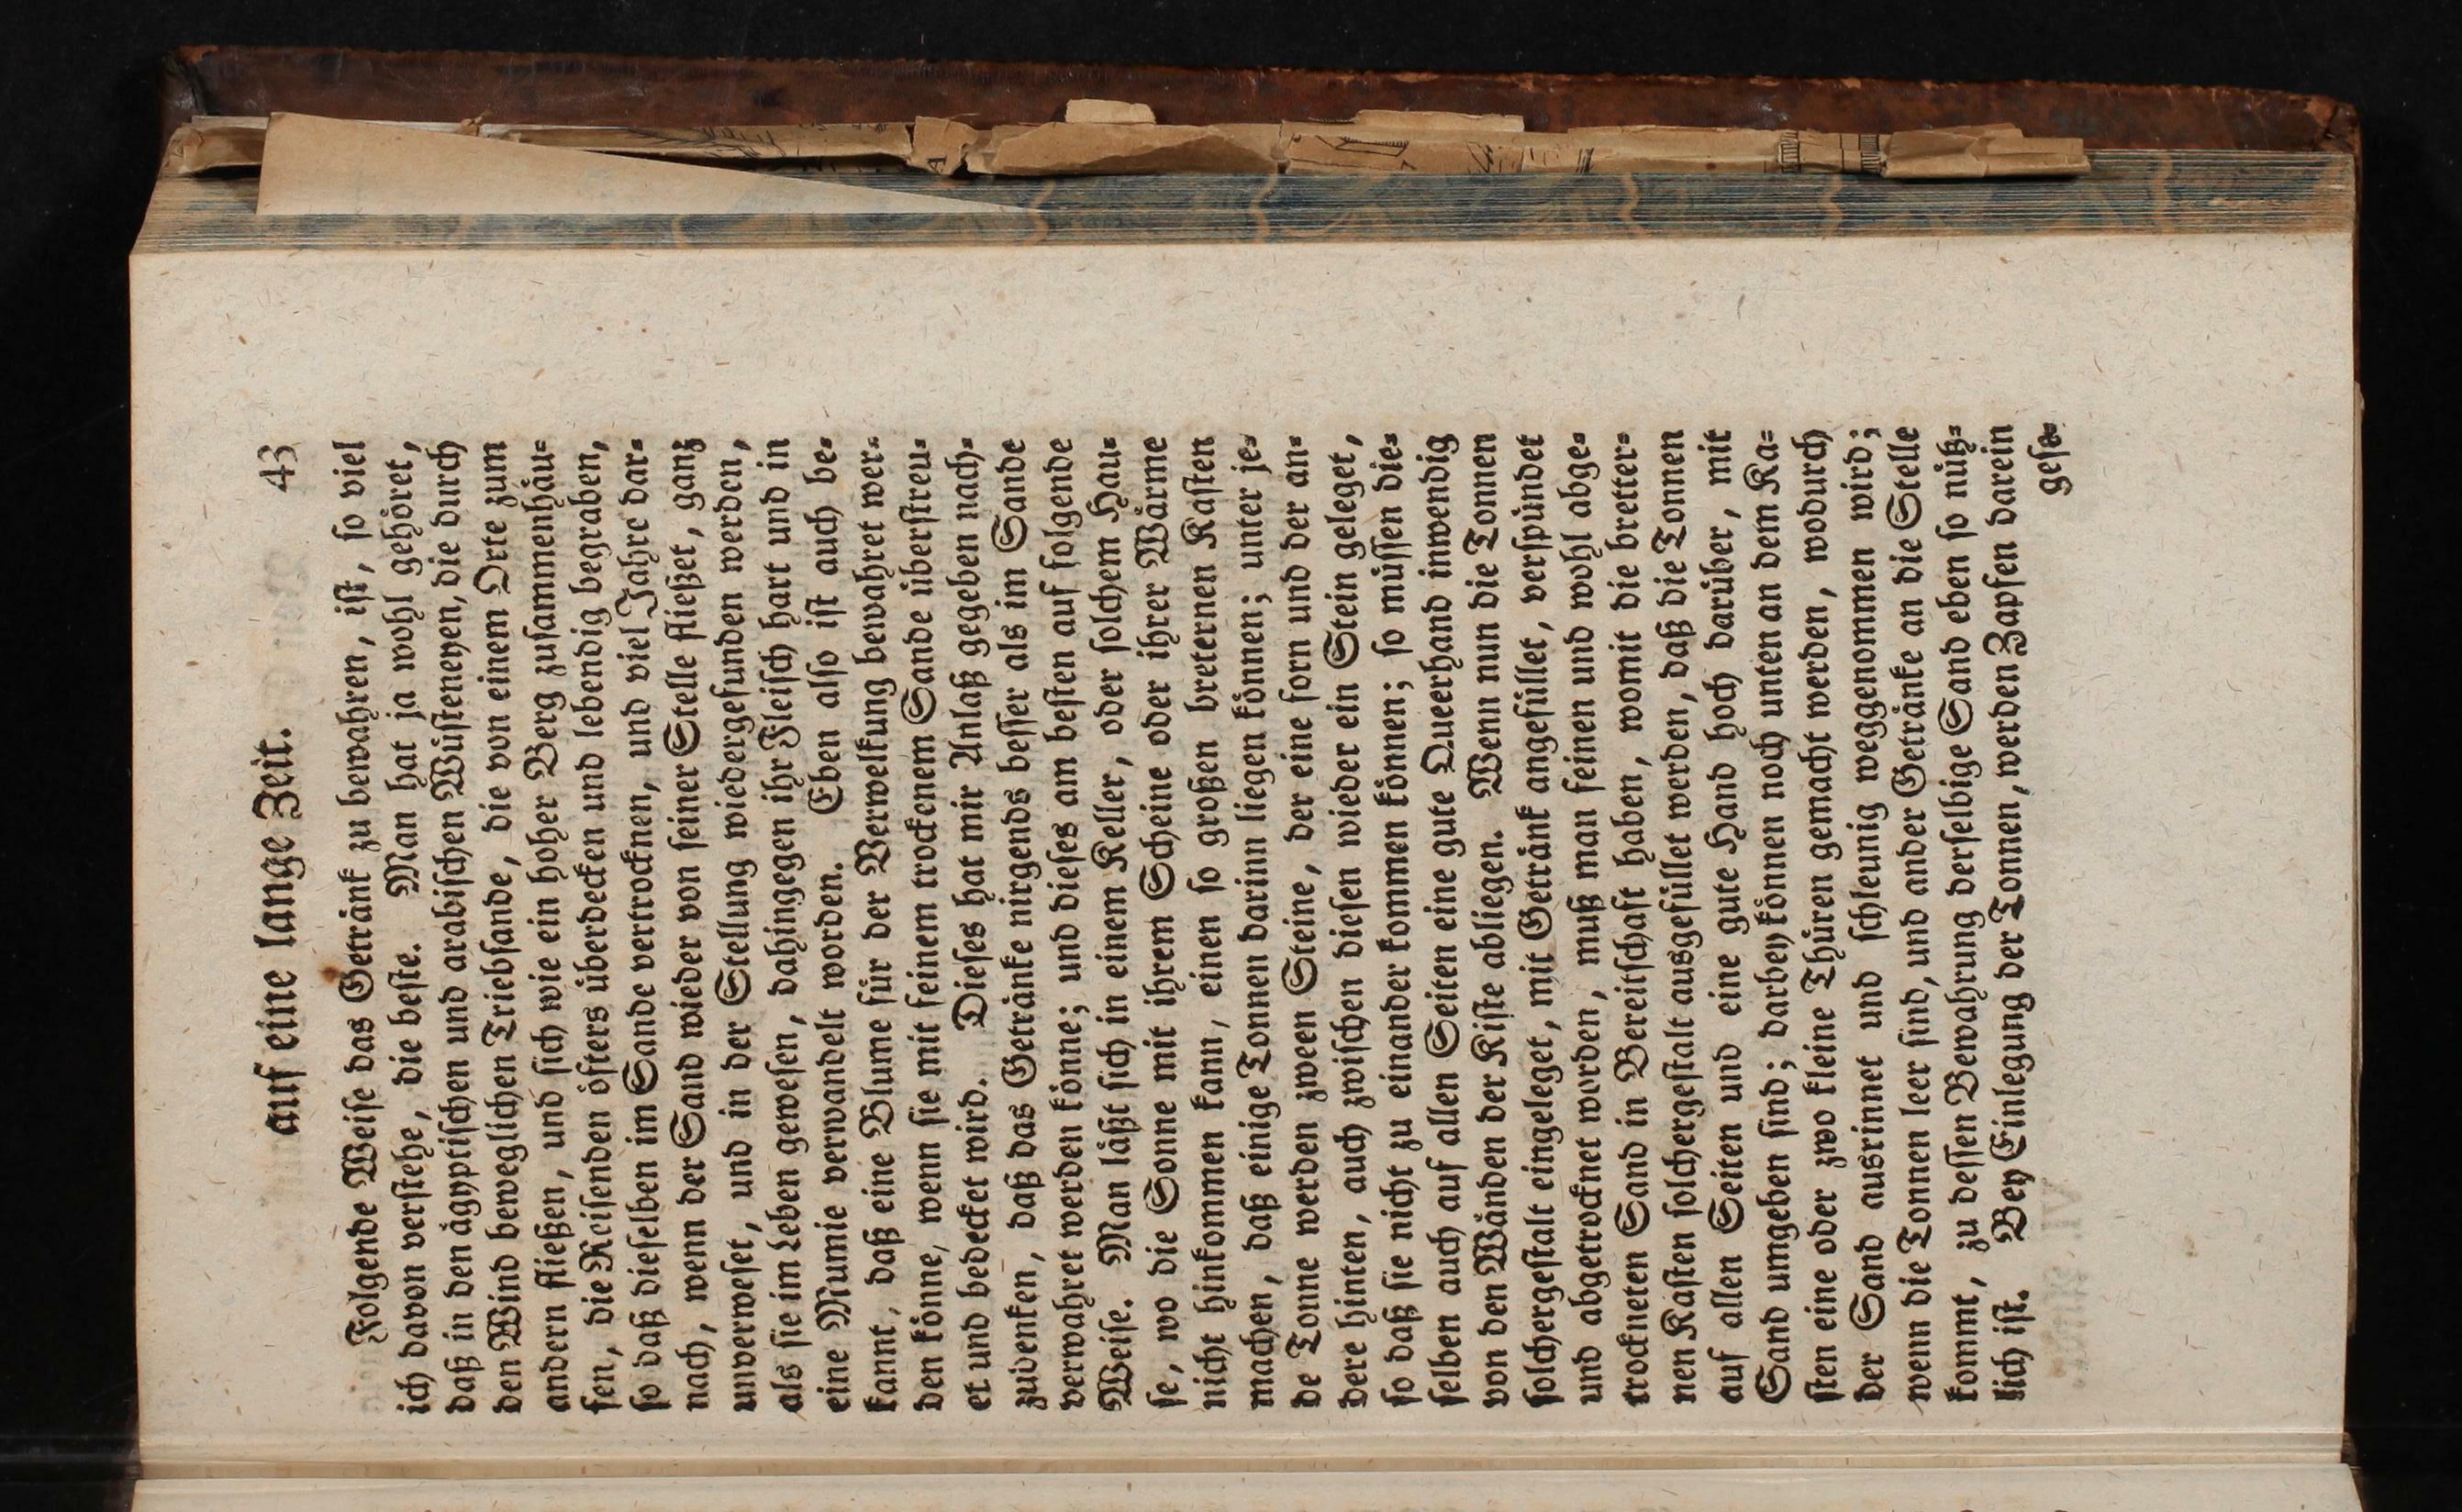 auf eine lange Zeit. 43
Folgende Weise das Getränk zu bewahren, ist, so viel
ich davon verstehe, die beste. Man hat ja wohl gehöret,
daß in den ägyptischen und arabischen Wüsteneyen, die durch
den Wind beweglichen Triebsande, die von einem Orte zum
andern fließen, und sich wie ein hoher Berg zusammenhäu=
fen, die Reisenden öfters überdecken und lebendig begraben,
so daß dieselben im Sande vertrocknen, und viel Jahre dar=
nach, wenn der Sand wieder von seiner Stelle fließet, ganz
unverweset, und in der Stellung wiedergefunden werden,
als sie im Leben gewesen, dahingegen ihr Fleisch hart und in
eine Mumie verwandelt worden. Eben also ist auch be=
kannt, daß eine Blume für der Verwelkung bewahret wer=
den könne, wenn sie mit feinem trockenem Sande überstreu=
et und bedecket wird. Dieses hat mir Anlaß gegeben nach=
zudenken, daß das Getränke nirgends besser als im Sande
verwahret werden könne; und dieses am besten auf folgende
Weise. Man läßt sich in einem Keller, oder solchem Hau=
se, wo die Sonne mit ihrem Scheine oder ihrer Wärme
nicht hinkommen kann, einen so großen breternen Kasten
machen, daß einige Tonnen darinn liegen können; unter je=
de Tonne werden zween Steine, der eine forn und der an=
dere hinten, auch zwischen diesen wieder ein Stein geleget,
so daß sie nicht zu einander kommen können; so müssen die=
selben auch auf allen Seiten eine gute Queerhand inwendig
von den Wänden der Kiste abliegen. Wenn nun die Tonnen
solchergestalt eingeleget, mit Getränk angefüllet, verspündet
und abgetrocknet worden, muß man feinen und wohl abge=
trockneten Sand in Bereitschaft haben, womit die bretter=
nen Kasten solchergestalt ausgefüllet werden, daß die Tonnen
auf allen Seiten und eine gute Hand hoch darüber, mit
Sand umgeben sind; darbey können noch unten an dem Ka=
sten eine oder zwo kleine Thüren gemacht werden, wodurch
der Sand ausrinnet und schleunig weggenommen wird;
wenn die Tonnen leer sind, und ander Getränke an die Stelle
kommt, zu dessen Bewahrung derselbige Sand eben so nütz=
lich ist. Bey Einlegung der Tonnen, werden Zapfen darein
gese=